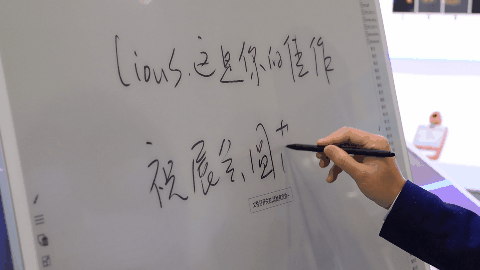 Lious.这是你的佳作
祝展会圆